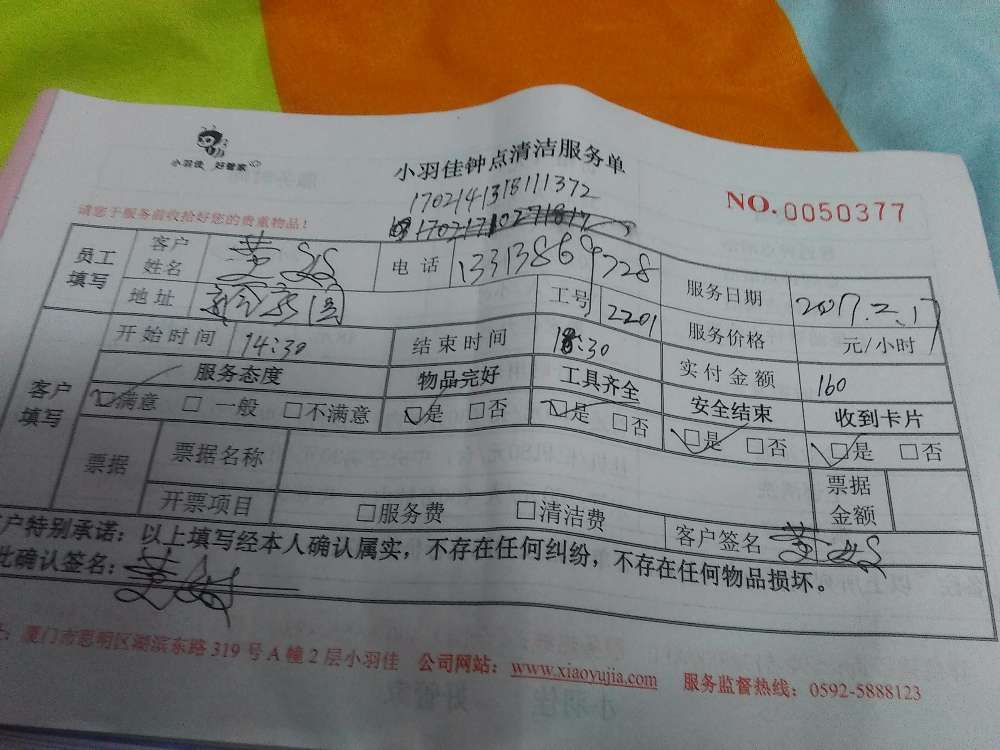 小羽佳 好管家
小羽佳钟点清洁服务单
1702141318111372
NO.0050377
请您于服务前收拾好您的贵重物品！
员工填写 客户姓名 电话 13313869728 服务日期 2017.2.17
地址 工号 2201 服务价格 元/小时
客户填写 开始时间 14:30 结束时间 18:30 实付金额 160
服务态度 物品完好 工具齐全 安全结束 收到卡片
☑满意 □一般 □不满意 ☑是 □否 ☑是 □否 ☑是 □否 ☑是 □否
票据 票据名称 票据金额
开票项目 □服务费 □清洁费 客户签名
户特别承诺：以上填写经本人确认属实，不存在任何纠纷，不存在任何物品损坏。
此确认签名：
厦门市思明区湖滨东路319号A幢2层小羽佳 公司网站：www.xiaoyujia.com 服务监督热线：0592-5888123